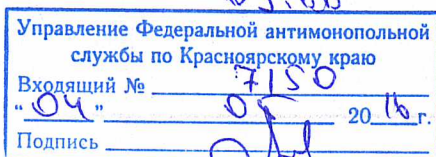 Управление Федеральной антимонопольной
службы по Красноярскому краю
Входящий № 7150
“04” 05 2016 г.
Подпись